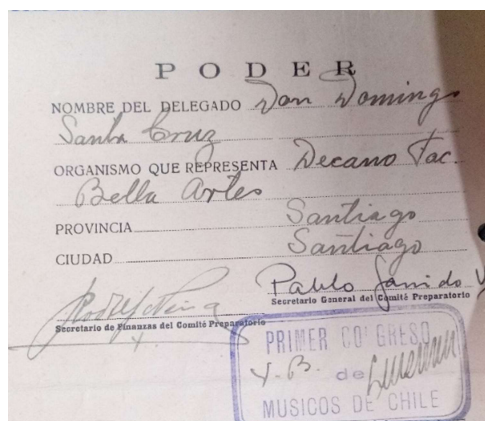 PODER
NOMBRE DEL DELEGADO Don Domingo
Santa Cruz
ORGANISMO QUE REPRESENTA Decano Fac.
Bella Artes
PROVINCIA Santiago
CIUDAD Santiago
Pablo Garrido
Secretario General del Comité Preparatorio
Secretario de Finanzas del Comité Preparatorio
PRIMER CO GRESO
de
MUSICOS DE CHILE